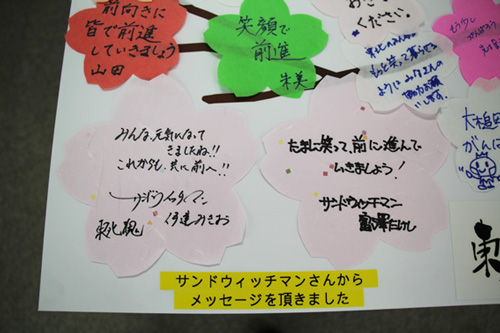 前向きに
皆で前進
していきましょう
山田
笑顔で
前進
朱美
ください!
もっと笑って暮らせる
ように
みんな、元気になって
きましたね!!
これからも、共に前へ!!
サンドウィッチマン
伊達みきお
東北魂
たまに笑って、前に進んで
いきましょう!
サンドウィッチマン
富澤たけし
がんば
東
サンドウィッチマンさんから
メッセージを頂きました